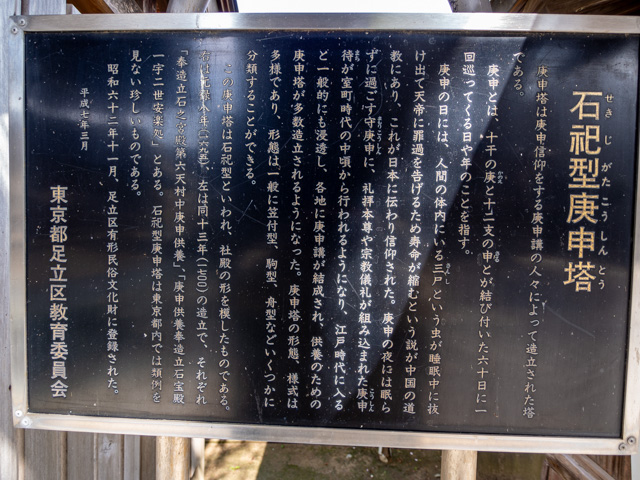 石祀型庚申塔
せきしがたこうしんとう
庚申塔は庚申信仰をする庚申講の人々によって造立された塔
である。
庚申とは、十干の庚と十二支の申とが結び付いた六十日に一
かのえ
さる
回巡ってくる日や年のことを指す。
庚申の日には、人間の体内にいる三尸という虫が睡眠中に抜
さんし
け出て天帝に罪過を告げるため寿命が縮むという説が中国の道
教にあり、これが日本に伝わり信仰された。庚申の夜には眠ら
ずに過ごす守庚申に、礼拝本尊や宗教儀礼が組み込まれた庚申
こうしん
待が室町時代の中頃から行われるようになり、江戸時代に入る
まち
と一般的にも浸透し、各地に庚申講が結成され、供養のための
庚申塔が多数造立されるようになった。庚申塔の形態、様式は
多様であり、形態は一般に笠付型、駒型、舟型などいくつかに
分類することができる。
この庚申塔は石祀型といわれ、社殿の形を模したものである。
右は元禄八年(一六九五)、左は同十三年(一七〇〇)の造立で、それぞれ
「奉造立石之宮殿第六天村中庚申供養」、「庚申供養奉造立石宝殿
一宇二世安楽処」とある。石祀型庚申塔は東京都内では類例を
見ない珍しいものである。
昭和六十二年十一月、足立区有形民俗文化財に登録された。
平成七年三月
東京都足立区教育委員会